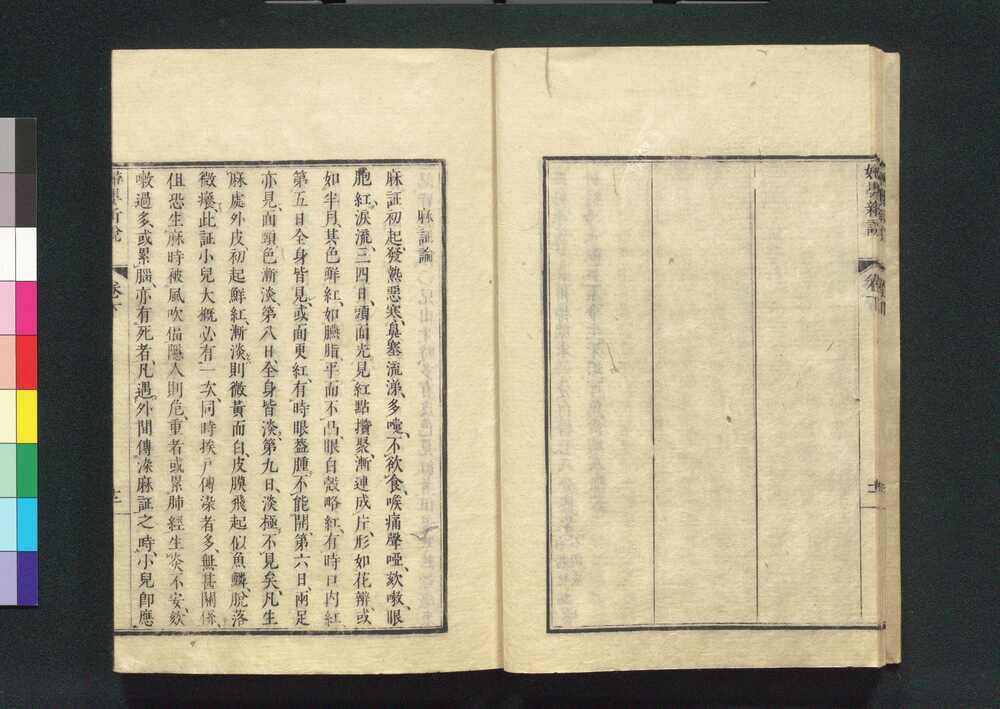 婦嬰新説
卷下
麻証論
麻証初起、發熱惡寒、鼻塞流涕、多嚏、不欲食、喉痛聲啞、欬嗽、眼
胞紅、淚流、三四日、頭面先見紅點、攢聚漸連成片、形如花瓣、或
如半月、其色鮮紅、如臙脂、平而不凸、眼白殼略紅、有時口內紅、
第五日全身皆見、或面更紅、有時眼蓋腫、不能開、第六日、兩足
亦見、面頸色漸淡、第八日、全身皆淡、第九日、淡極、不見矣、凡生
麻處外皮、初起鮮紅、漸淡、則微黃而白、皮膜飛起似魚鱗、脫落
微癢、此証小兒大概必有一次、同時挨戶傳染者多、無甚關係、
但恐生麻時被風吹、倘隱入則危、重者或累肺經生炎、不安、欬
嗽過多、或累腦、亦有死者、凡遇外間傳染麻証之時、小兒卽應